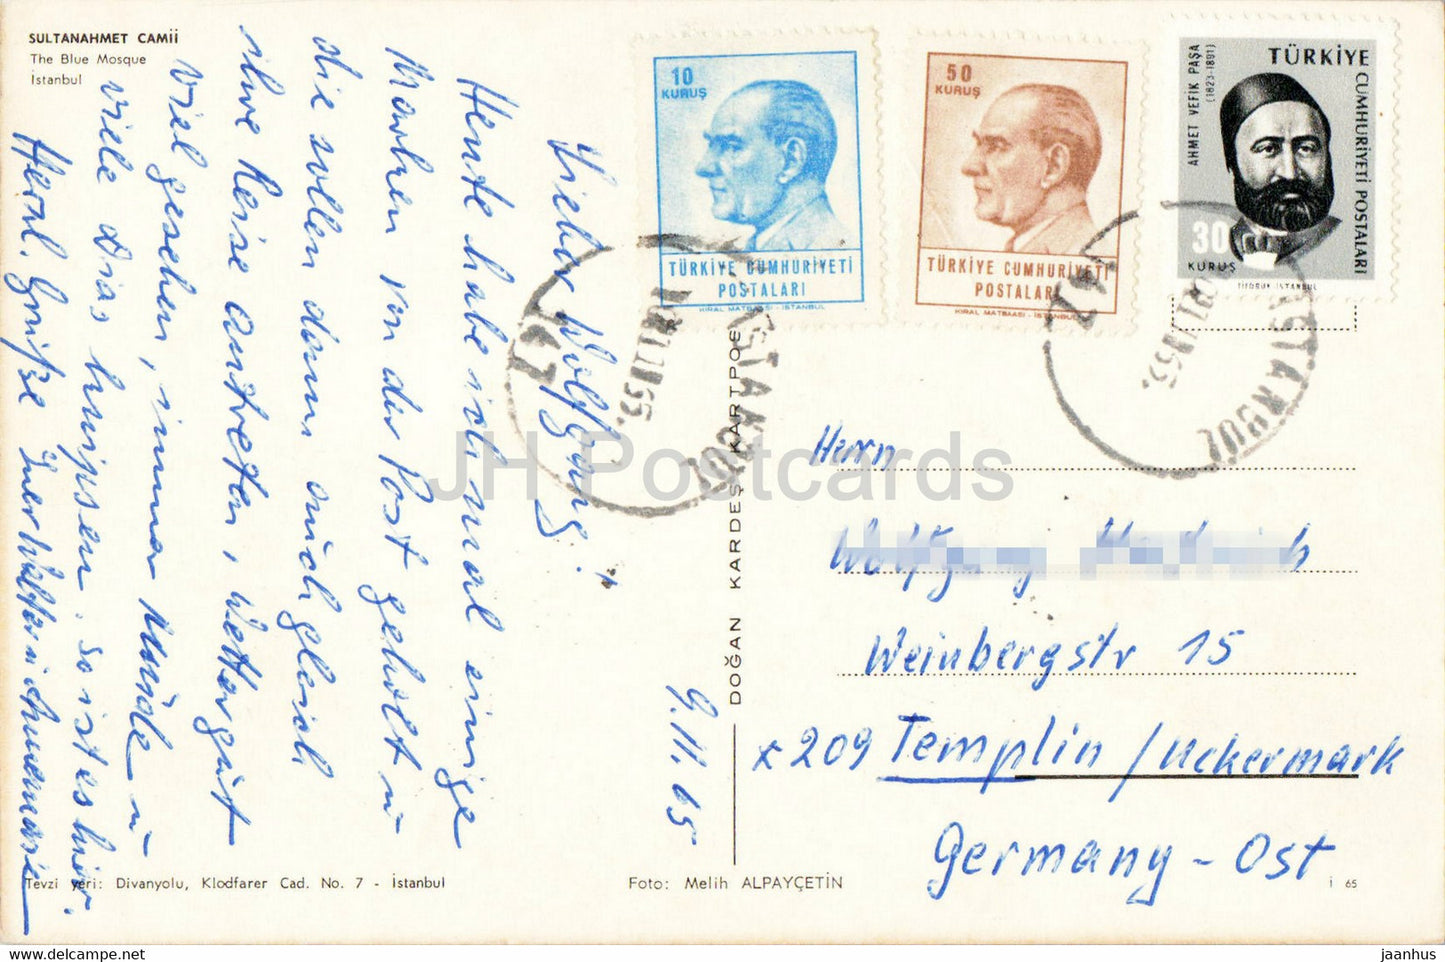 SULTANAHMET CAMİİ
The Blue Mosque
İstanbul
Lieber Wolfgang!
Heute habe ich mal einige
Marken von der Post geholt u
die sollen dann auch gleich
ihre Reise antreten, Wetter gut
viel gesehen, immer müde u
viele Dias knipsen. So ist es hier.
Herzl. Grüße Euer Walter u Annemarie
9.11.65
10
KURUŞ
TÜRKİYE CUMHURİYETİ
POSTALARI
KIRAL MATBAASI - İSTANBUL
50
KURUŞ
TÜRKİYE CUMHURİYETİ
POSTALARI
KIRAL MATBAASI - İSTANBUL
TÜRKİYE
CUMHURİYETİ POSTALARI
AHMET VEFİK PAŞA
(1823-1891)
30
KURUŞ
TİFDRUK-İSTANBUL
İSTANBUL
İSTANBUL
DOĞAN KARDEŞ KARTPOSTAL
JH Postcards
Herrn
Wolfgang
Weinbergstr 15
x 209 Templin / Uckermark
Germany - Ost
Tevzi yeri: Divanyolu, Klodfarer Cad. No. 7 - İstanbul
Foto: Melih ALPAYÇETİN
İ 65
jaanhus